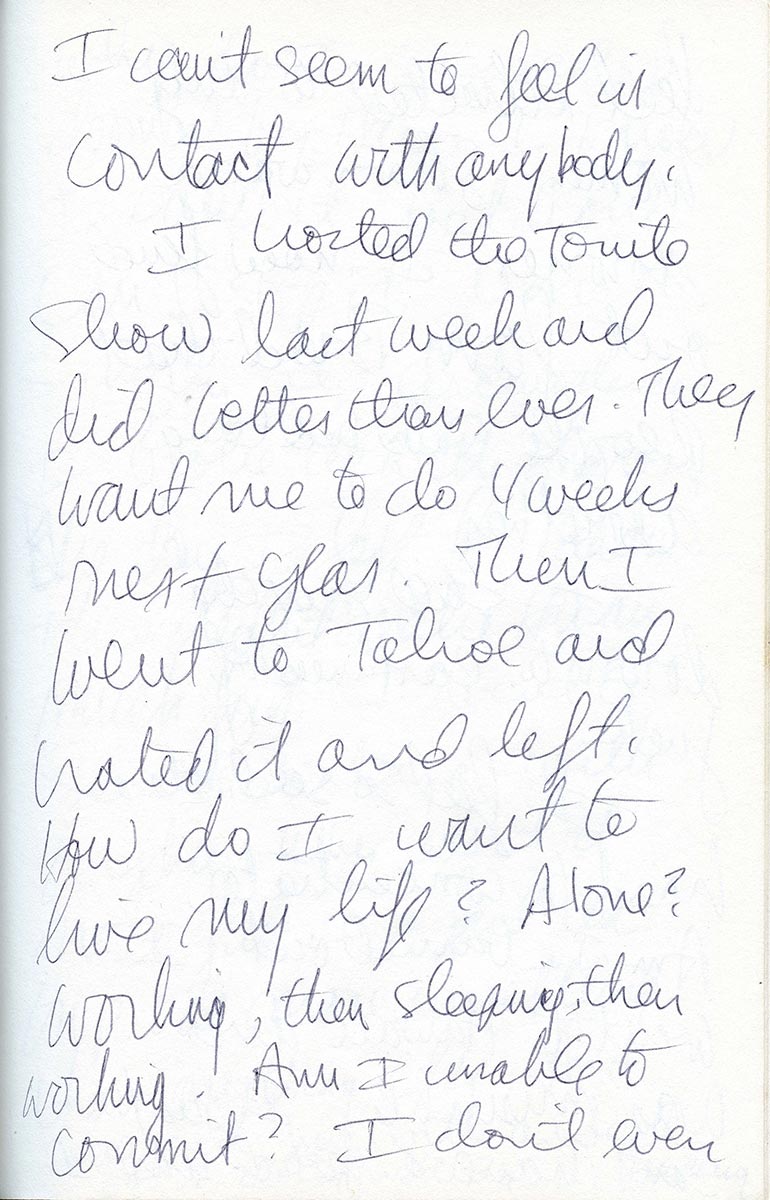 I can't seem to feel in
contact with anybody.
I hosted the Tonite
Show last week and
did better than ever. They
want me to do 4 weeks
next year. Then I
went to Tahoe and
hated it and left.
How do I want to
live my life? Alone?
Working, then sleeping, then
working. Am I unable to
commit? I don't even